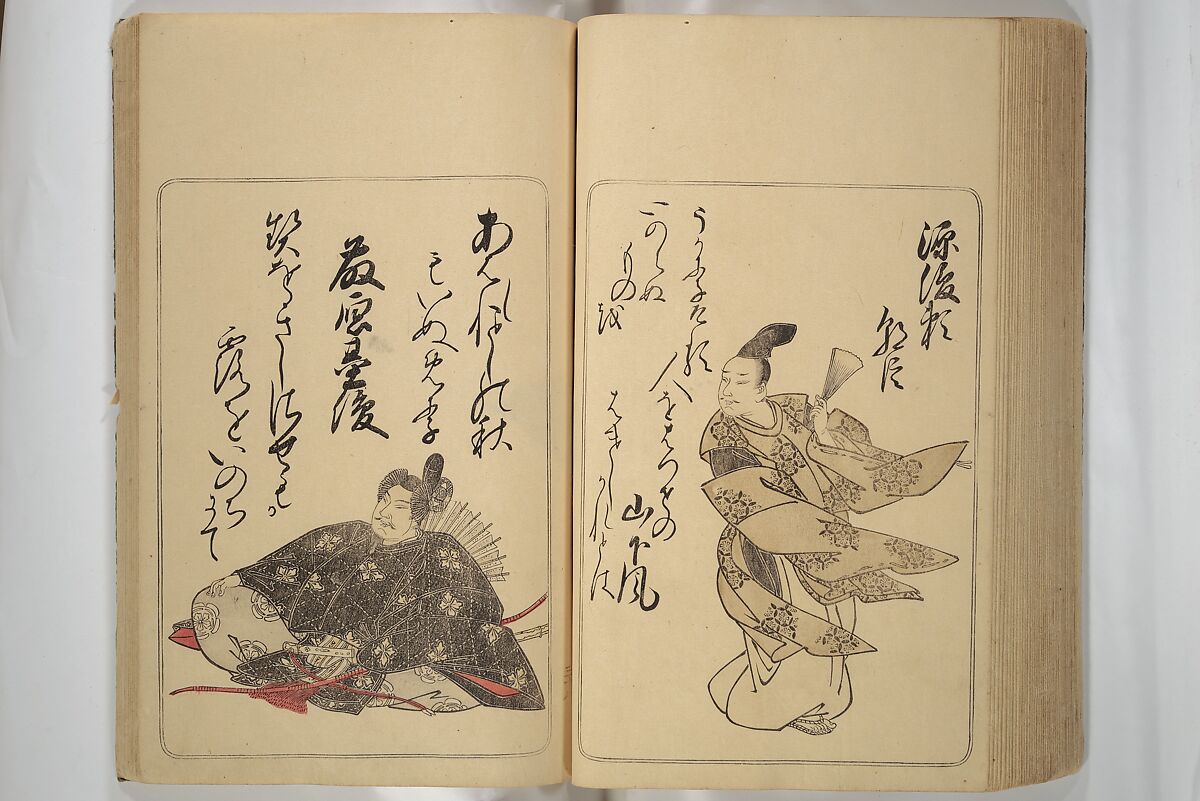 源俊頼
朝臣
うかりける
人をはつせの
山下風
はけしかれとは
いのらぬ
ものを
藤原基俊
契をきしさせもか
露をいのちにて
あはれことしの秋
もいぬめり